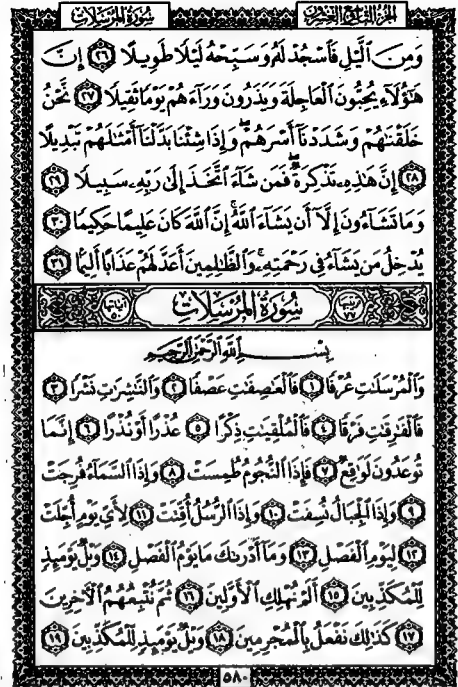 سُورَةُ المُرْسَلَاتِ الجُزْءُ التَّاسِعُ وَالعِشْرُونَ
وَمِنَ ٱلَّيْلِ فَٱسْجُدْ لَهُۥ وَسَبِّحْهُ لَيْلًا طَوِيلًا ٢٦ إِنَّ
هَٰٓؤُلَآءِ يُحِبُّونَ ٱلْعَاجِلَةَ وَيَذَرُونَ وَرَآءَهُمْ يَوْمًا ثَقِيلًا ٢٧ نَّحْنُ
خَلَقْنَٰهُمْ وَشَدَدْنَآ أَسْرَهُمْ ۖ وَإِذَا شِئْنَا بَدَّلْنَآ أَمْثَٰلَهُمْ تَبْدِيلًا
٢٨ إِنَّ هَٰذِهِۦ تَذْكِرَةٌ ۖ فَمَن شَآءَ ٱتَّخَذَ إِلَىٰ رَبِّهِۦ سَبِيلًا ٢٩
وَمَا تَشَآءُونَ إِلَّآ أَن يَشَآءَ ٱللَّهُ ۚ إِنَّ ٱللَّهَ كَانَ عَلِيمًا حَكِيمًا ٣٠
يُدْخِلُ مَن يَشَآءُ فِى رَحْمَتِهِۦ ۚ وَٱلظَّٰلِمِينَ أَعَدَّ لَهُمْ عَذَابًا أَلِيمًۢا ٣١
سُورَةُ المُرْسَلَاتِ
بِسْمِ ٱللَّهِ ٱلرَّحْمَٰنِ ٱلرَّحِيمِ
وَٱلْمُرْسَلَٰتِ عُرْفًا ١ فَٱلْعَٰصِفَٰتِ عَصْفًا ٢ وَٱلنَّٰشِرَٰتِ نَشْرًا ٣
فَٱلْفَٰرِقَٰتِ فَرْقًا ٤ فَٱلْمُلْقِيَٰتِ ذِكْرًا ٥ عُذْرًا أَوْ نُذْرًا ٦ إِنَّمَا
تُوعَدُونَ لَوَٰقِعٌ ٧ فَإِذَا ٱلنُّجُومُ طُمِسَتْ ٨ وَإِذَا ٱلسَّمَآءُ فُرِجَتْ
٩ وَإِذَا ٱلْجِبَالُ نُسِفَتْ ١٠ وَإِذَا ٱلرُّسُلُ أُقِّتَتْ ١١ لِأَىِّ يَوْمٍ أُجِّلَتْ
١٢ لِيَوْمِ ٱلْفَصْلِ ١٣ وَمَآ أَدْرَىٰكَ مَا يَوْمُ ٱلْفَصْلِ ١٤ وَيْلٌ يَوْمَئِذٍ
لِّلْمُكَذِّبِينَ ١٥ أَلَمْ نُهْلِكِ ٱلْأَوَّلِينَ ١٦ ثُمَّ نُتْبِعُهُمُ ٱلْءَاخِرِينَ
١٧ كَذَٰلِكَ نَفْعَلُ بِٱلْمُجْرِمِينَ ١٨ وَيْلٌ يَوْمَئِذٍ لِّلْمُكَذِّبِينَ ١٩
٥٨٠